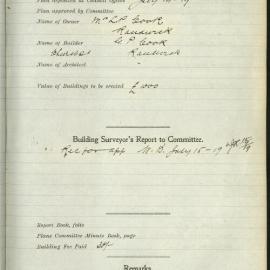 Plan deposited at Council Office July 14-19
Plan approved by Committee
Name of Owner Mr L P Cook
Randwick
Name of Builder G P Cook
Randwick
Name of Architect -
Value of Buildings to be erected £1000
Building Surveyor's Report to Committee.
Rec for app July 15-19
Report Book, folio
Plans Committee Minute Book, page
Building Fee Paid
Remarks